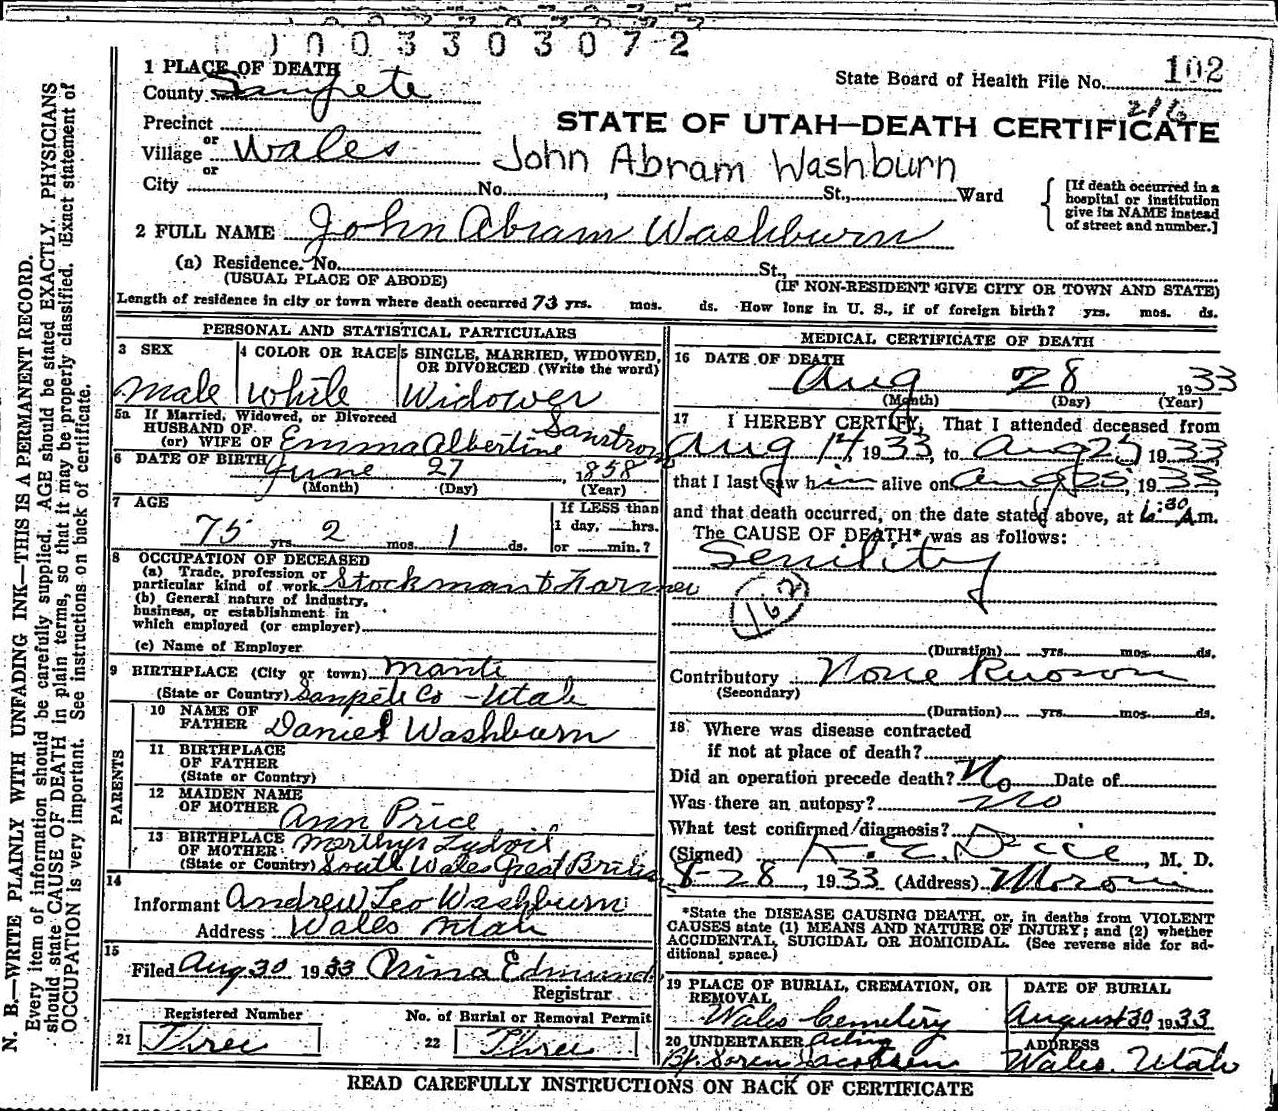 1003303072
1 PLACE OF DEATH
County Sanpete
State Board of Health File No. 102
216
Precinct
or
Village Wales
or
STATE OF UTAH—DEATH CERTIFICATE
John Abram Washburn
City No. , St., Ward
[If death occurred in a hospital or institution give its NAME instead of street and number.]
2 FULL NAME John Abram Washburn
(a) Residence. No. St.,
(USUAL PLACE OF ABODE) (IF NON-RESIDENT GIVE CITY OR TOWN AND STATE)
Length of residence in city or town where death occurred 73 yrs. mos. ds. How long in U. S., if of foreign birth? yrs. mos. ds.
PERSONAL AND STATISTICAL PARTICULARS
3 SEX
male
4 COLOR OR RACE
White
5 SINGLE, MARRIED, WIDOWED,
OR DIVORCED (Write the word)
Widower
5a If Married, Widowed, or Divorced
HUSBAND OF
(or) WIFE OF Emma Albertine Sanstrom
6 DATE OF BIRTH June 27, 1858
(Month) (Day) (Year)
7 AGE
75 yrs. 2 mos. 1 ds.
If LESS than
1 day, hrs.
or min.?
8 OCCUPATION OF DECEASED
(a) Trade, profession or
particular kind of work Stockman & Farmer
(b) General nature of industry,
business, or establishment in
which employed (or employer)
(c) Name of Employer
9 BIRTHPLACE (City or town) Manti
(State or Country) Sanpete Co - Utah
PARENTS
10 NAME OF
FATHER Daniel Washburn
11 BIRTHPLACE
OF FATHER
(State or Country)
12 MAIDEN NAME
OF MOTHER Ann Price
13 BIRTHPLACE
OF MOTHER Merthyr Tydvil
(State or Country) South Wales Great Britian
14
Informant Andrew Leo Washburn
Address Wales Utah
15
Filed Aug 30 1933 Edmunds
Registrar
Registered Number
21 Three
No. of Burial or Removal Permit
22 Three
MEDICAL CERTIFICATE OF DEATH
16 DATE OF DEATH
Aug 28, 1933
(Month) (Day) (Year)
17 I HEREBY CERTIFY, That I attended deceased from
Aug 14, 1933, to Aug 25, 1933,
that I last saw him alive on Aug 25, 1933,
and that death occurred, on the date stated above, at 6:30 A.m.
The CAUSE OF DEATH* was as follows:
Senility
162
(Duration) yrs. mos. ds.
Contributory None Known
(Secondary)
(Duration) yrs. mos. ds.
18 Where was disease contracted
if not at place of death?
Did an operation precede death? No Date of
Was there an autopsy? no
What test confirmed diagnosis?
(Signed) , M. D.
8-28, 1933 (Address) Moroni
*State the DISEASE CAUSING DEATH, or, in deaths from VIOLENT
CAUSES state (1) MEANS AND NATURE OF INJURY; and (2) whether
ACCIDENTAL, SUICIDAL OR HOMICIDAL. (See reverse side for ad-
ditional space.)
19 PLACE OF BURIAL, CREMATION, OR
REMOVAL
Wales Cemetery
DATE OF BURIAL
August 30, 1933
20 UNDERTAKER Acting
Bp. Soren Jacobsen
ADDRESS
Wales, Utah
READ CAREFULLY INSTRUCTIONS ON BACK OF CERTIFICATE
N. B.—WRITE PLAINLY WITH UNFADING INK—THIS IS A PERMANENT RECORD.
Every item of information should be carefully supplied. AGE should be stated EXACTLY. PHYSICIANS
should state CAUSE OF DEATH in plain terms, so that it may be properly classified. Exact statement of
OCCUPATION is very important. See instructions on back of certificate.